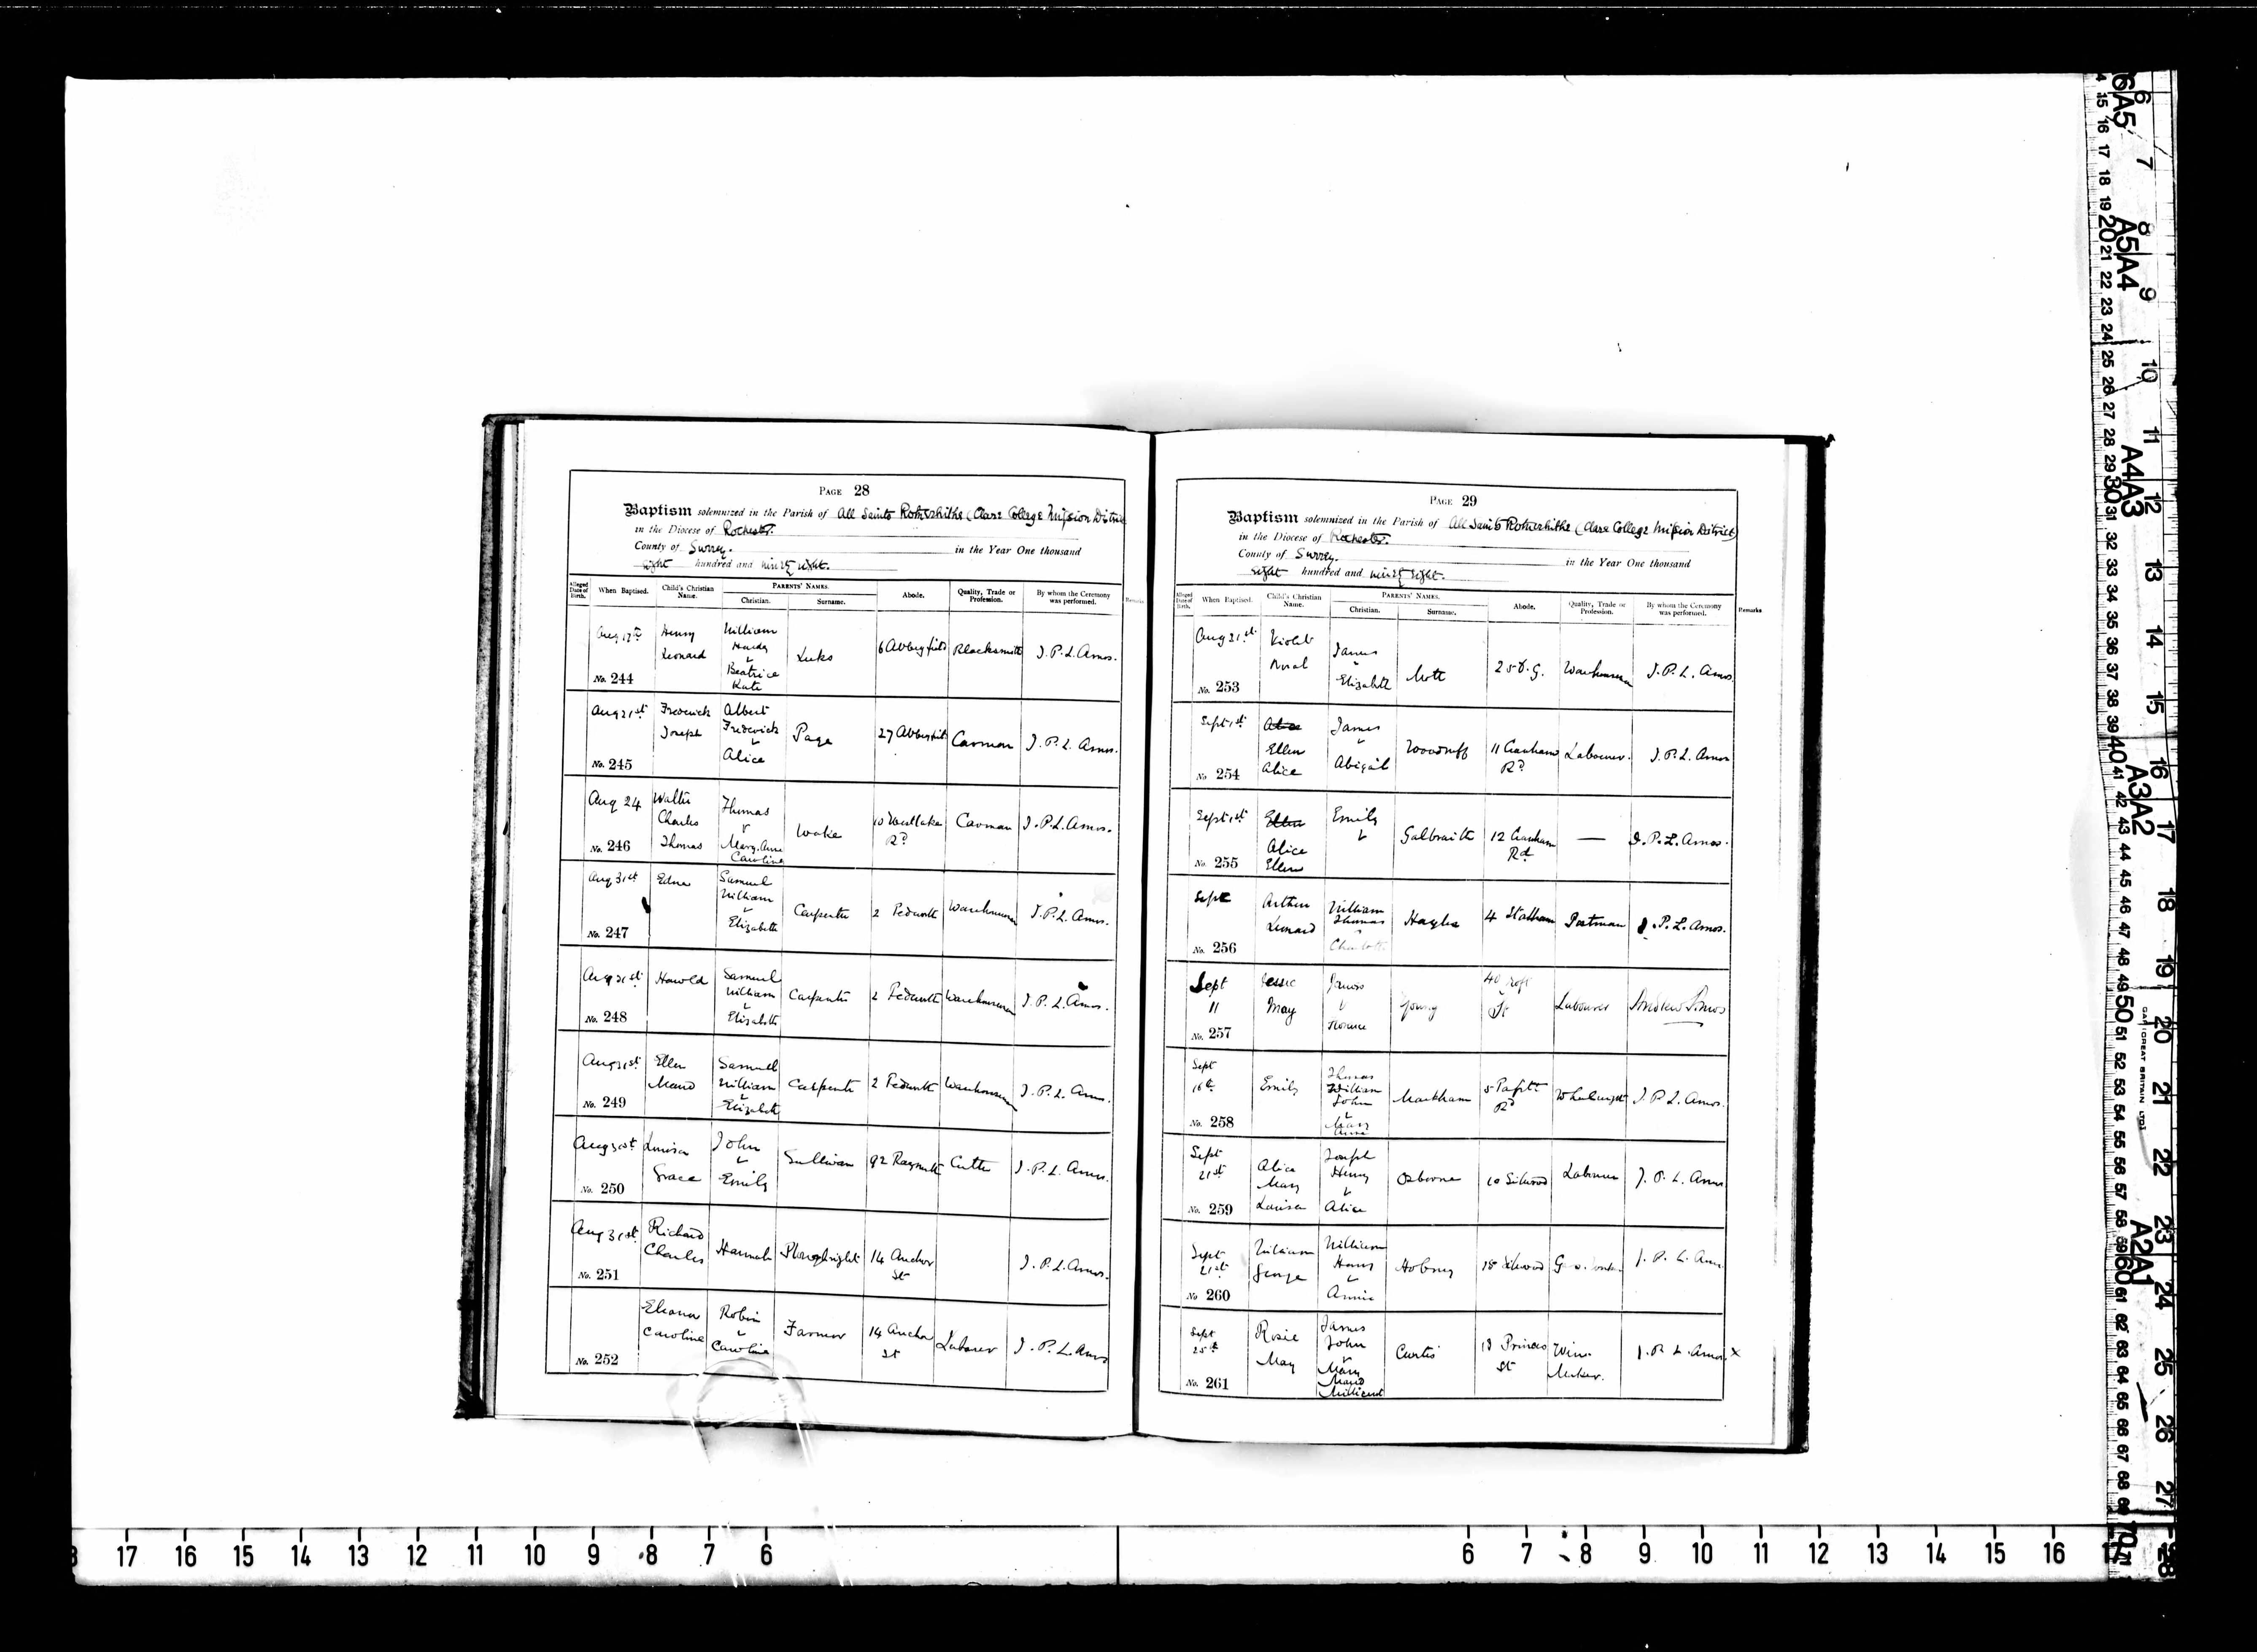 PAGE 28
Baptism solemnized in the Parish of All Saints Rotherhithe (Clare College Mission District
in the Diocese of Rochester.
County of Surrey. in the Year One thousand
eight hundred and ninety eight.
Alleged Date of Birth. When Baptised. Child's Christian Name. PARENTS' NAMES. Christian. Surname. Abode. Quality, Trade or Profession. By whom the Ceremony was performed. Remarks
No. 244 Aug 17th Henry Leonard William & Beatrice Kate Luks 6 Abbeyfield Blacksmith J. P. L. Amos.
No. 245 Aug 21st Frederick Joseph Albert Frederick & Alice Page 27 Abbeyfield Carman J. P. L. Amos.
No. 246 Aug 24 Walter Charles Thomas Thomas & Mary Ann Caroline Wake 10 Westlake Rd Carman J. P. L. Amos.
No. 247 Aug 31st Edna Samuel William & Elizabeth Carpenter 2 Pedworth Warehouseman J. P. L. Amos.
No. 248 Aug 31st Harold Samuel William & Elizabeth Carpenter 2 Pedworth Warehouseman J. P. L. Amos.
No. 249 Aug 31st Ellen Maud Samuel William & Elizabeth Carpenter 2 Pedworth Warehouseman J. P. L. Amos.
No. 250 Aug 31st Louisa Grace John & Emily Sullivan 92 Raymouth Cutter J. P. L. Amos.
No. 251 Aug 31st Richard Charles Hannah Ploughright 14 Anchor St J. P. L. Amos.
No. 252 Eleanor Caroline Robin & Caroline Farmer 14 Anchor St Labourer J. P. L. Amos
PAGE 29
Baptism solemnized in the Parish of All Saints Rotherhithe (Clare College Mission District)
in the Diocese of Rochester.
County of Surrey. in the Year One thousand
eight hundred and ninety eight.
Alleged Date of Birth. When Baptised. Child's Christian Name. PARENTS' NAMES. Christian. Surname. Abode. Quality, Trade or Profession. By whom the Ceremony was performed. Remarks
No. 253 Aug 21st Violet James & Elizabeth Mott Warehouseman J. P. L. Amos
No. 254 Sept 1st Alice Ellen Alice James & Abigail Woodruff 11 Cranham Rd Labourer. J. P. L. Amos
No. 255 Sept 1st Ellen Alice Ellen Emily & Galbraith 12 Cranham Rd — J. P. L. Amos.
No. 256 Sept Arthur Leonard William Thomas & Charlotte Hayles 4 Statham Postman J. P. L. Amos.
No. 257 Sept 11 Jessie May James & Florence Young 40 St Labourer Andrew Amos
No. 258 Sept 16th Emily Thomas William John & Mary Anne Markham 5 Rd J. P. L. Amos.
No. 259 Sept 21st Alice Mary Louisa Joseph Henry & Alice Osborne 10 Silwood Labourer J. P. L. Amos
No. 260 Sept 21st William George William Henry & Annie 18 Silwood J. P. L. Amos
No. 261 Sept 25th Rosie May James John & Mary Maud Millicent Curtis 18 Princes St Maker. J. P. L. Amos. x